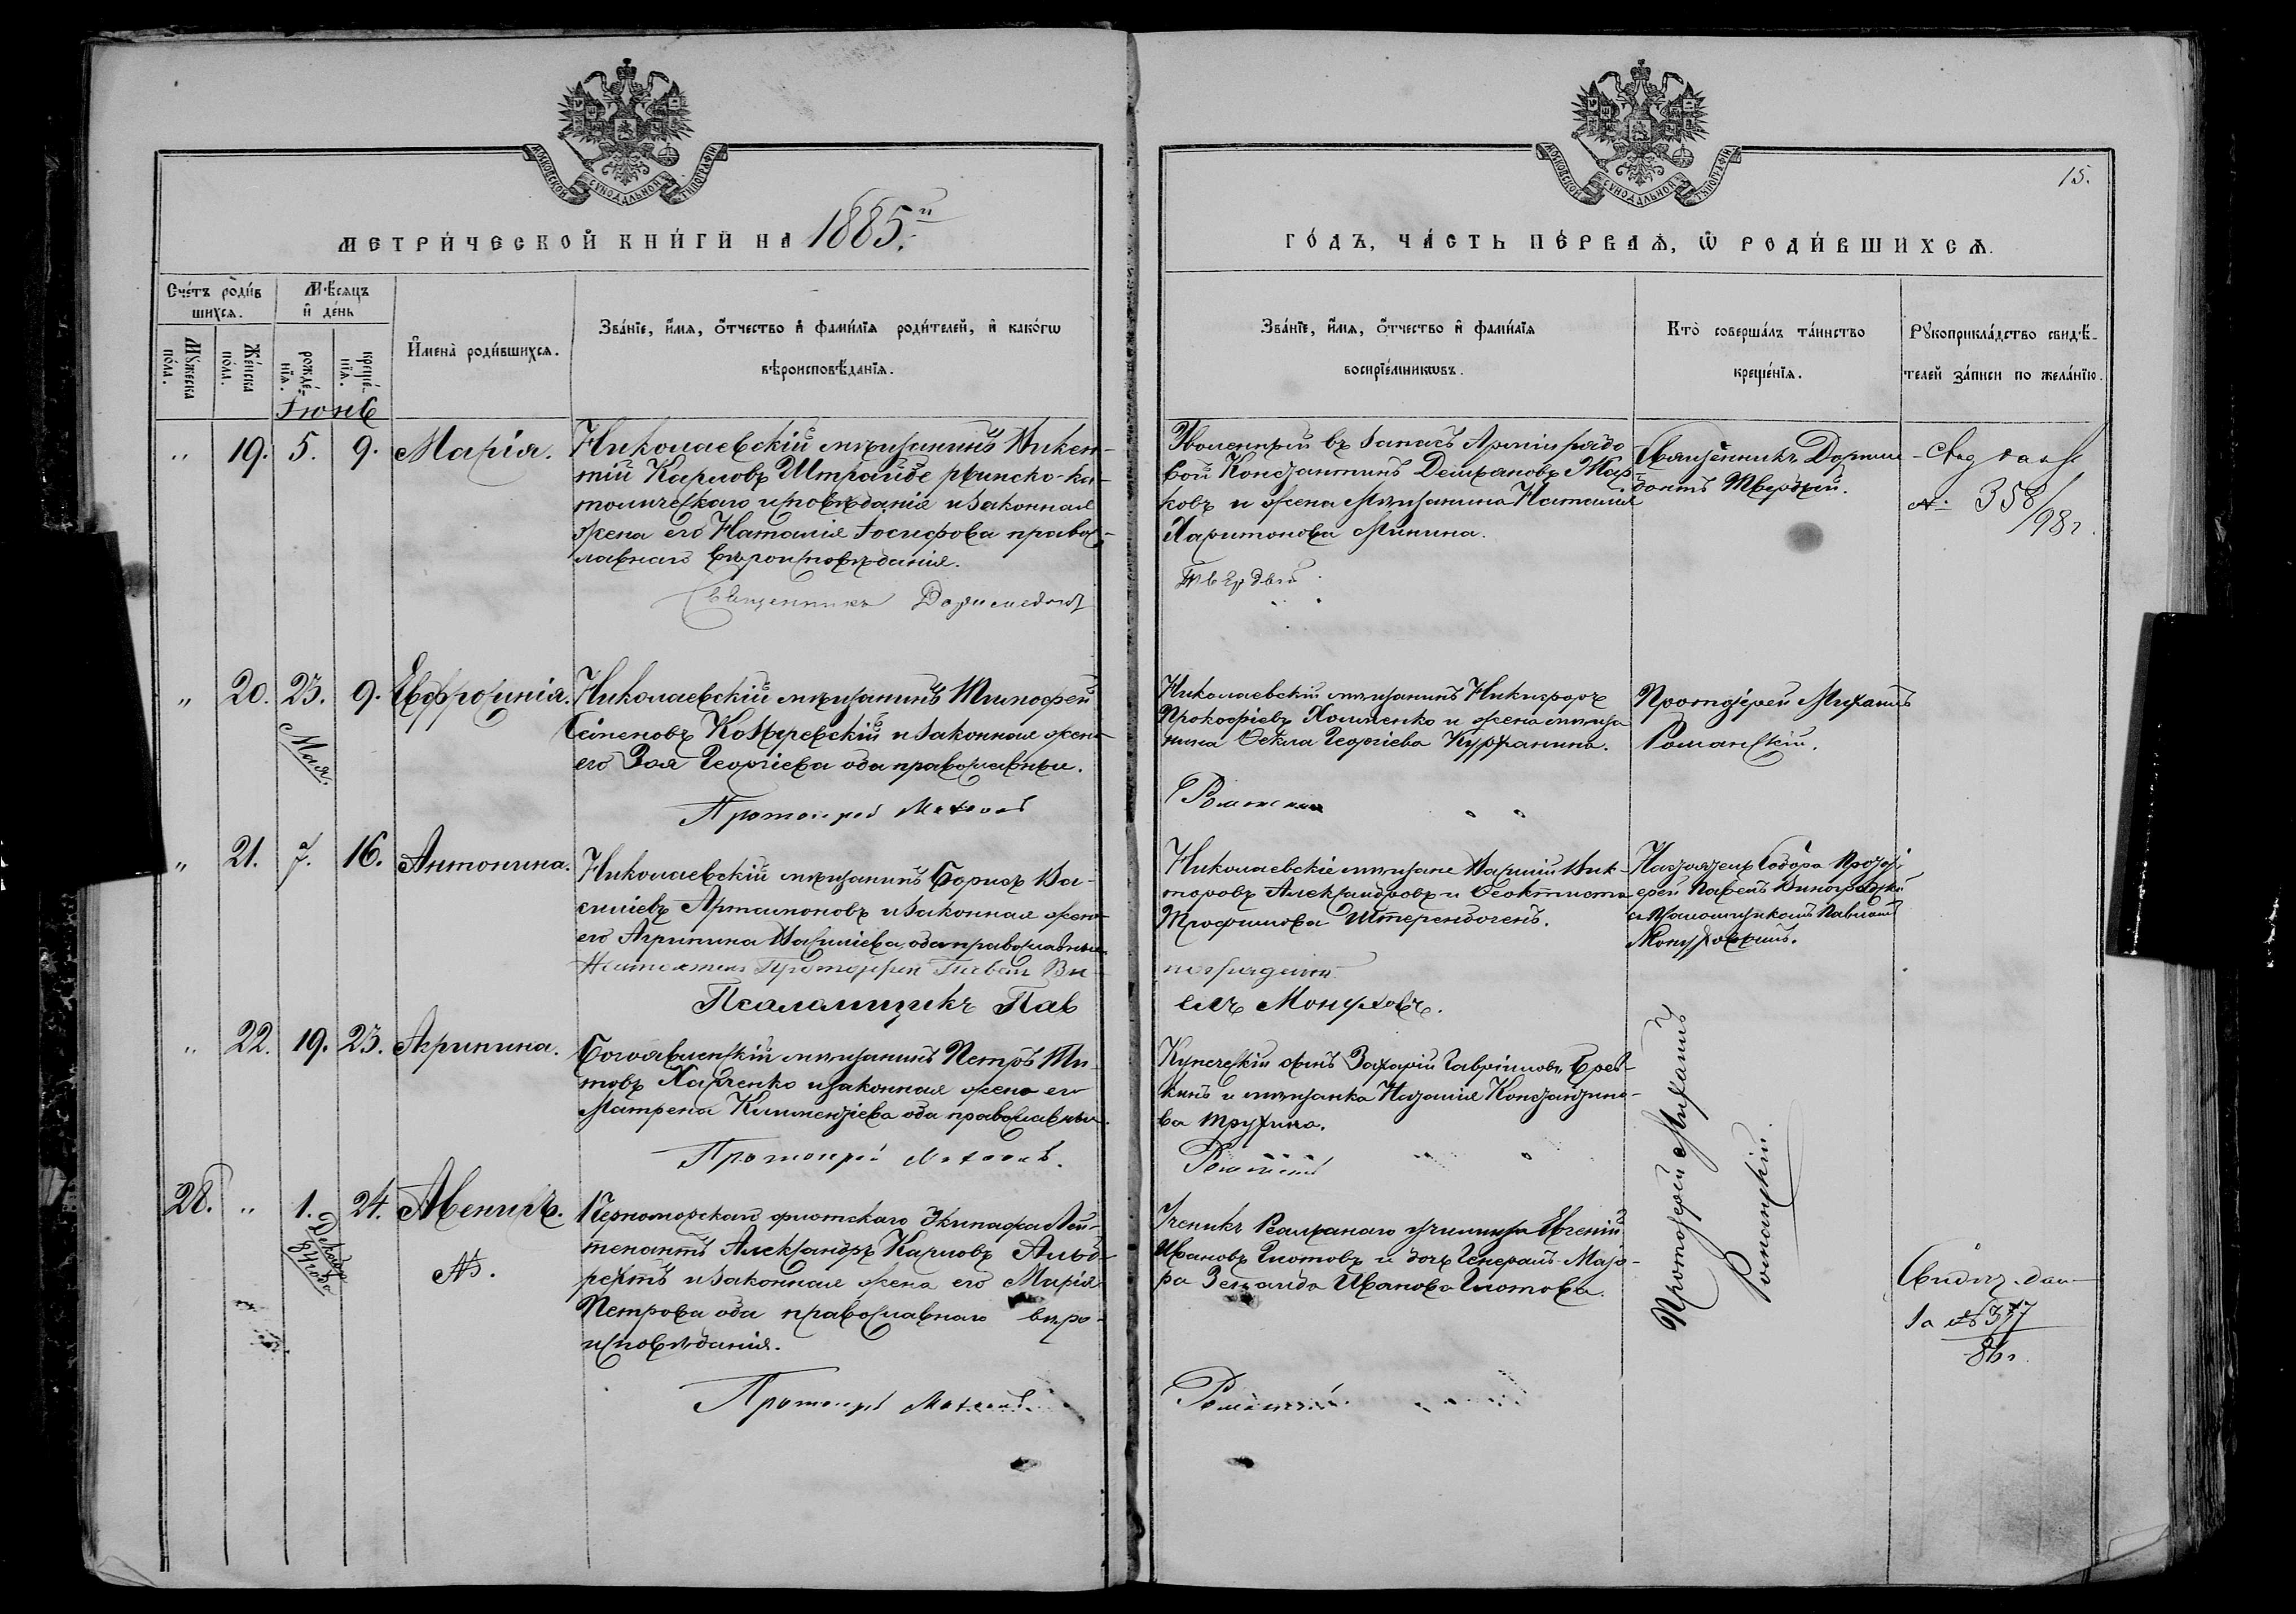 МОСКОВСКОЙ СѴНОДАЛЬНОЙ ТИПОГРАФІИ
МЕТРИ́ЧЕСКОЙ КНИ́ГИ НА 1885.й
Сче́тъ роди́в
шихся.
Мѣ́сяцъ
и҆ де́нь
Мꙋ́жеска
по́ла.
Же́нска
по́ла.
рожде́-
нїя.
креще́-
нїя.
И҆мена̀ роди́вшихся.
Зва́нїе, и҆́мя, ѻ҆́тчество и҆ фами́лїя роди́телей, и҆ како́гѡ
вѣроисповѣ́данїя.
Іюнь
" 19. 5. 9. Марія.
Николаевскій мѣщанинъ Викен-
тій Карловъ Штрайде римско-ка-
толическаго исповѣданія и законная
жена его Наталія Іосифова правос-
лавнаго вѣроисповѣданія.
Священникъ Доримедонтъ
" 20. 23. Мая. 9. Евфросинія.
Николаевскій мѣщанинъ Тимофей
Семеновъ и законная жена
его Зоя Георгіева оба православные.
Протоіерей Михаилъ
" 21. 7. 16. Антонина.
Николаевскій мѣщанинъ Борисъ Ва-
силіевъ Артамоновъ и законная жена
его Агрипина Васильева оба православные
Настоятель Протоіерей Павелъ Ви-
Псаломщикъ Пав
" 22. 19. 23. Агрипина.
Богоявленскій мѣщанинъ Петръ Ти-
товъ Харченко и законная жена его
Матрена Климентіева оба православные.
Протоіерей Михаилъ.
28. " 1. Декабр. 84 года 24. Авениръ.
№.
Черноморскаго флотскаго Экипажа Лей-
тенантъ Александръ Карловъ Альб-
рехтъ и законная жена его Марія
Петрова оба православнаго вѣро-
исповѣданія.
Протоіерей Михаилъ
МОСКОВСКОЙ СѴНОДАЛЬНОЙ ТИПОГРАФІИ
15.
ГО́ДЪ, ЧА́СТЬ ПЕ́РВАЯ, Ѡ҆ РОДИ́ВШИХСЯ.
Зва́нїе, и҆́мя, ѻ҆́тчество и҆ фами́лїя
воспрїе́мникѡвъ.
Кто̀ соверша́лъ та́инство
креще́нїя.
Рꙋкоприкла́дство свидѣ́-
телей за́писи по жела́нїю.
Уволенный въ запасъ Арміи рядо-
вой Константинъ Демьяновъ Мар-
ковъ и жена мѣщанина Наталія
Харитонова Минина.
Твердый
Священникъ Дориме-
донтъ Твердый.
№ 358/98 г.
Николаевскій мѣщанинъ Никифоръ
Прокофіевъ Хоменко и жена мѣща-
нина Ѳекла Георгіева Курханина.
Романскій
Протоіерей Михаилъ
Романскій.
Николаевскіе мѣщане Василій Вик-
торовъ Александровъ и Ѳеоктиста
Трофимова Штеренбогенъ.
ноградскій
елъ Монуховъ.
Настоятель Собора Протоі-
ерей Павелъ Виноградскій
съ Псаломщикомъ Павломъ
Монуховымъ.
Купеческій сынъ Захарій Гавріиловъ
и мѣщанка Наталія Константино-
ва Трухина.
Романскій
Протоіерей Михаилъ
Романскій.
Ученикъ Реальнаго училища Евгеній
Ивановъ Глотовъ и дочь Генералъ-Маіо-
ра Зенаида Иванова Глотова.
Романскій
Свидѣт. дан
за № 377
86 г.